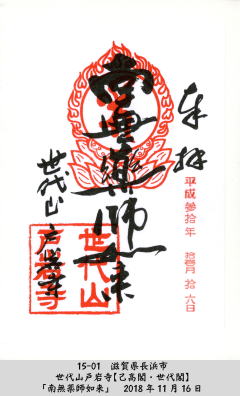 奉拝
平成参拾年 拾壱月 拾六日
南無薬師如来
世代山 戸岩寺
世代山
戸岩寺
15-01 滋賀県長浜市
世代山戸岩寺【己高閣・世代閣】
「南無薬師如来」 2018年11月16日